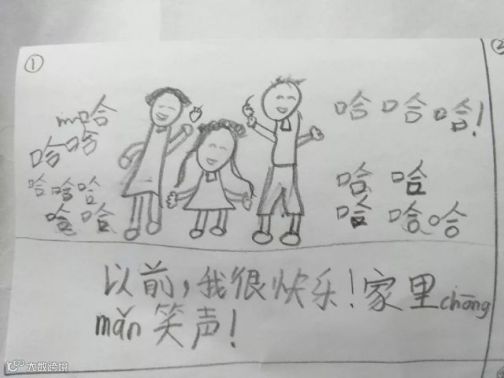 ①
②
哈 哈 哈 哈!
哈 哈
哈 哈 哈
哈 哈
哈 哈
哈 哈 哈
以前,我很快乐!家里chōng
mǎn笑声!
大数跨境